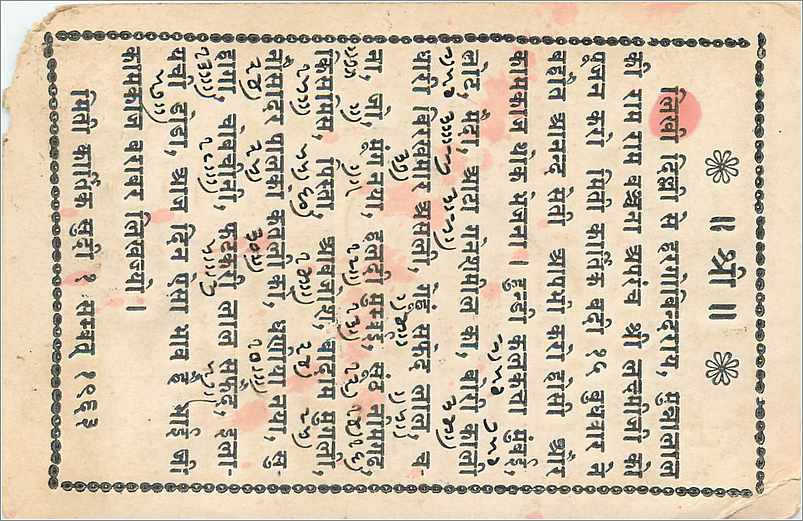 ॥ श्री ॥
लिखी दिल्ली से हरगोविन्दराय, मुन्नालाल
की राम राम बञ्चना अपरंच श्री लक्ष्मीजी को
पूजन करो मिती कार्तिक बदी १५ बुधवार ने
बहौत आनन्द सेती आपभी करो होसी और
कामकाज थोक भंजना। हुन्डी कलकत्ता मुंबई,
लोट, मैदा, आटा गनेशमील का, बोरी काली
घोरी बिरखमार असली, गेहूं सफेद लाल, च-
ना, जो, मूंग नया, हलदी मुम्बई, सूंठ
किसमिस, पिस्ता, आबजोश, बादाम मुगली,
नौसादर पालका कतली का, नया, सु-
हागा, चोबचीनी, फटकरी लाल सफेद, इला-
यची डोडा, आज दिन ऐसा भाव है भाई जी
कामकाज बराबर लिखज्यो।
मिती कार्तिक सुदी १ सम्बत् १९६३